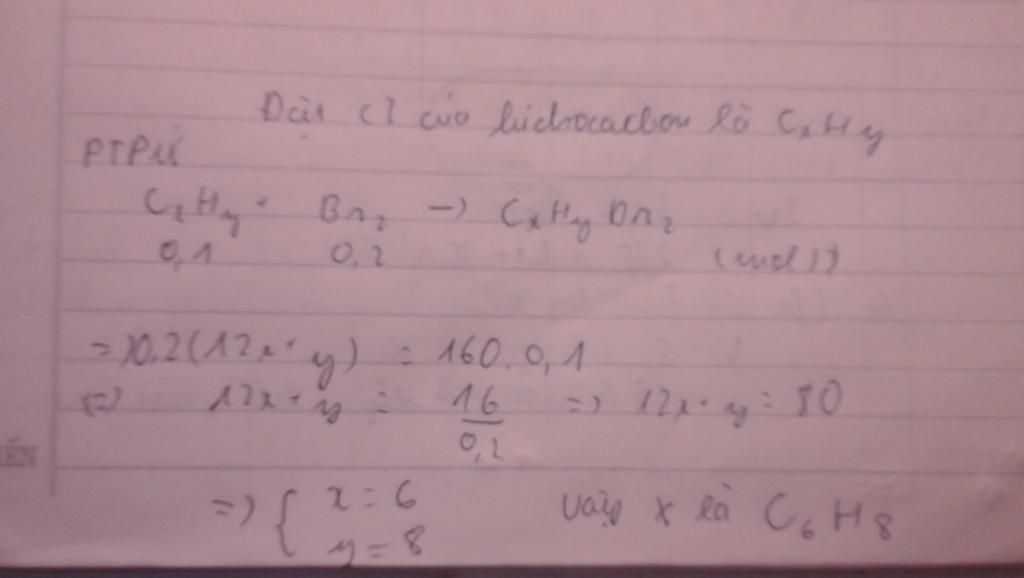 Đặt CT của hidrocacbon là CxHy
PTPƯ
CxHy + Br2 -> CxHyBr2
0,1 0,2 (mol)
=> 0,2(12x + y) = 160.0,1
<=> 12x + y = 16/0,2 => 12x + y = 80
=> { x = 6
y = 8
Vậy X là C6H8